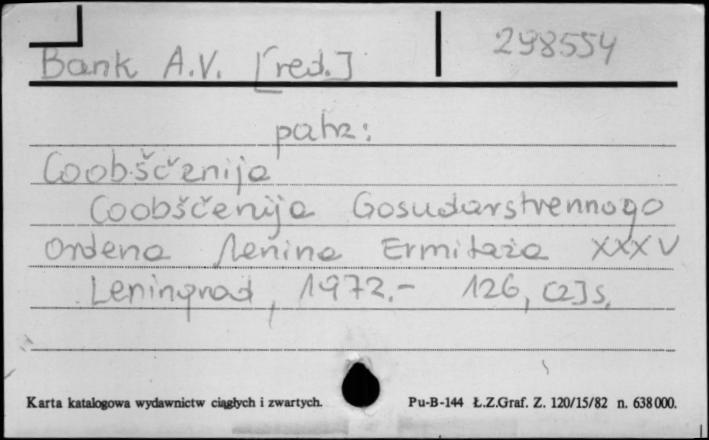 Bank A.V. [red.] 298554
patrz:
Coobščenija
Coobščenija Gosudarstvennogo
Ordena Lenina Ermitaža XXXV
Leningrad, 1972.- 126, [2] s.
Karta katalogowa wydawnictw ciągłych i zwartych. Pu-B-144 Ł.Z.Graf. Z. 120/15/82 n. 638000.